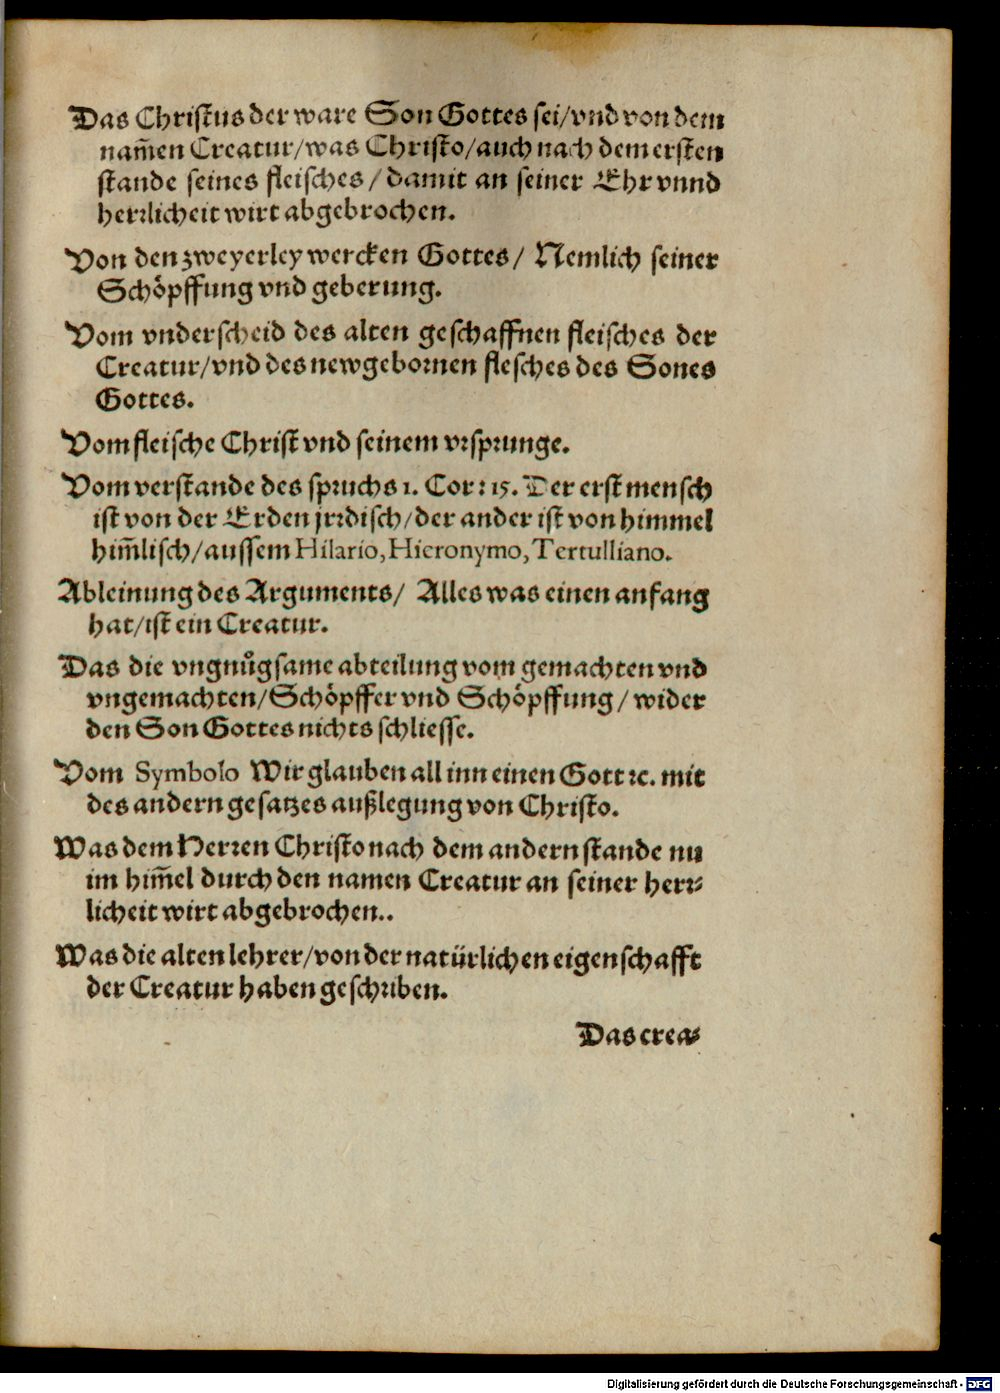 Das Christus der ware Son Gottes sei/vnd von dem
nam̃en Creatur/was Christo/auch nach dem ersten
stande seines fleisches/damit an seiner Ehr vnnd
herrlicheit wirt abgebrochen.
Von den zweyerley wercken Gottes/ Nemlich seiner
Schöpffung vnd geberung.
Vom vnderscheid des alten geschaffnen fleisches der
Creatur/vnd des newgebornen flesches des Sones
Gottes.
Vom fleische Christ vnd seinem vrsprunge.
Vom verstande des spruchs 1. Cor: 15. Der erst mensch
ist von der Erden jrrdisch/der ander ist von himmel
him̃lisch/aussem Hilario, Hieronymo, Tertulliano.
Ableinung des Arguments/ Alles was einen anfang
hat/ist ein Creatur.
Das die vngnůgsame abteilung vom gemachten vnd
vngemachten/Schöpffer vnd Schöpffung/wider
den Son Gottes nichts schliesse.
Vom Symbolo Wir glauben all inn einen Gott ꝛc. mit
des andern gesatzes außlegung von Christo.
Was dem Herren Christo nach dem andern stande nu
im him̃el durch den namen Creatur an seiner herr⸗
licheit wirt abgebrochen..
Was die alten lehrer/von der natürlichen eigenschafft
der Creatur haben geschriben.
Das crea⸗
Digitalisierung gefördert durch die Deutsche Forschungsgemeinschaft - DFG